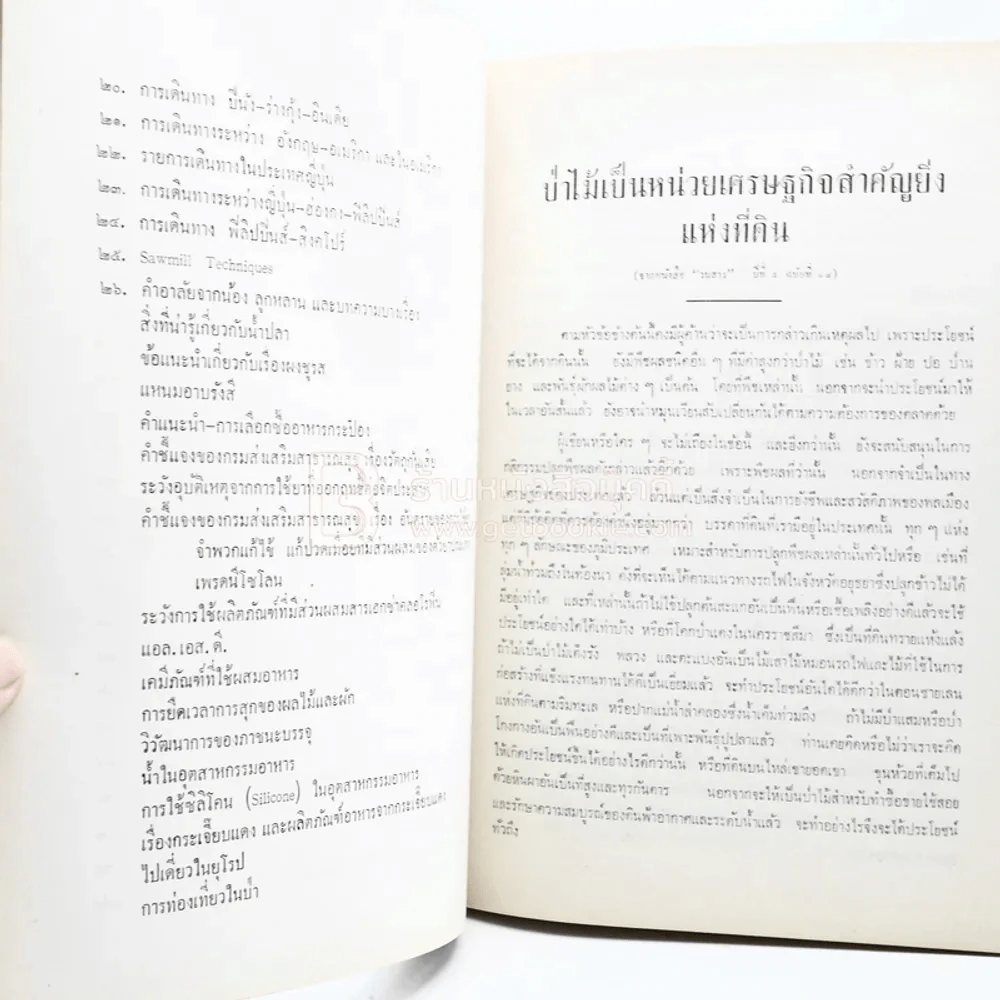 ๒๐. การเดินทาง ปีนัง-ร่างกุ้ง-อินเดีย
๒๑. การเดินทางระหว่าง อังกฤษ-อเมริกา และในอเมริกา
๒๒. รายการเดินทางในประเทศญี่ปุ่น
๒๓. การเดินทางระหว่างญี่ปุ่น-ฮ่องกง-ฟิลิปปินส์
๒๔. การเดินทาง ฟิลิปปินส์-สิงคโปร์
๒๕. Sawmill Techniques
๒๖. คำอาลัยจากน้อง ลูกหลาน และบทความบางเรื่อง
สิ่งที่น่ารู้เกี่ยวกับน้ำปลา
ข้อแนะนำเกี่ยวกับเรื่องผงชูรส
แหนมอาบรังสี
คำแนะนำ-การเลือกซื้ออาหารกระป๋อง
คำชี้แจงของกรมส่งเสริมสาธารณสุข เรื่องวัตถุกันเสีย
ระวังอุบัติเหตุจากการใช้ยาที่ออกฤทธิ์ต่อจิตประสาท
คำชี้แจงของกรมส่งเสริมสาธารณสุข เรื่อง
จำพวกแก้ไข้ แก้ปวดเมื่อยที่มีส่วนผสมของ
เพรดนีโซโลน
ระวังการใช้ผลิตภัณฑ์ที่มีส่วนผสมสารเฮกซาคลอโรฟีน
แอล.เอส.ดี.
เคมีภัณฑ์ที่ใช้ผสมอาหาร
การยืดเวลาการสุกของผลไม้และผัก
วิวัฒนาการของภาชนะบรรจุ
น้ำในอุตสาหกรรมอาหาร
การใช้ซิลิโคน (Silicone) ในอุตสาหกรรมอาหาร
เรื่องกระเจี๊ยบแดง และผลิตภัณฑ์อาหารจากกระเจี๊ยบแดง
ไปเดี่ยวในยุโรป
การท่องเที่ยวในป่า
ป่าไม้เป็นหน่วยเศรษฐกิจสำคัญยิ่ง
แห่งที่ดิน
(จากหนังสือ "วนสาร" ปีที่ ฉบับที่ )
ตามหัวข้อข้างต้นนี้คงมีผู้ค้านว่าจะเป็นการกล่าวเกินเหตุผลไป เพราะประโยชน์
ที่จะได้จากดินนั้น ยังมีพืชผลชนิดอื่น ๆ ที่มีค่าสูงกว่าป่าไม้ เช่น ข้าว ฝ้าย ปอ ป่าน
ยาง และพันธุ์ผักผลไม้ต่าง ๆ เป็นต้น โดยที่พืชเหล่านั้น นอกจากจะนำประโยชน์มาให้
ในเวลาอันสั้นแล้ว ยังอาจนำหมุนเวียนสับเปลี่ยนกันได้ตามความต้องการของตลาดด้วย
ผู้เขียนหรือใคร ๆ จะไม่เถียงในข้อนี้ และยิ่งกว่านั้น ยังจะสนับสนุนในการ
กสิกรรมปลูกพืชผลดังกล่าวแล้วยิ่งด้วย เพราะพืชผลที่ว่านั้น นอกจากจำเป็นในทาง
เศรษฐกิจของประเทศแล้ว ล้วนแต่เป็นสิ่งจำเป็นในการยังชีพและสวัสดิภาพของพลเมือง
บรรดาที่ดินที่เรามีอยู่ในประเทศนั้น ทุก ๆ แห่ง
ทุก ๆ ลักษณะของภูมิประเทศ เหมาะสำหรับการปลูกพืชผลเหล่านั้นทั่วไปหรือ เช่นที่
ลุ่มน้ำท่วมถึงในท้องนา ดังที่จะเห็นได้ตามแนวทางรถไฟในจังหวัดอยุธยาซึ่งปลูกข้าวไม่ได้
มีอยู่เท่าใด และที่เหล่านั้นถ้าไม่ใช้ปลูกต้นสะแกอันเป็นฟืนหรือเชื้อเพลิงอย่างดีแล้วจะใช้
ประโยชน์อย่างใดได้เท่าบ้าง หรือที่โคกป่าแดงในนครราชสีมา ซึ่งเป็นที่ดินทรายแห้งแล้ง
ถ้าไม่เป็นป่าไม้เต็งรัง พลวง และตะแบงอันเป็นไม้เสาไม้หมอนรถไฟและไม้ที่ใช้ในการ
ก่อสร้างที่แข็งแรงทนทานได้ดีเป็นเยี่ยมแล้ว จะทำประโยชน์อันใดได้ดีกว่าในตอนชายเลน
แห่งที่ดินตามริมทะเล หรือปากแม่น้ำลำคลองซึ่งน้ำเค็มท่วมถึง ถ้าไม่มีป่าแสมหรือป่า
โกงกางอันเป็นฟืนอย่างดีและเป็นที่เพาะพันธุ์ปูปลาแล้ว ท่านเคยคิดหรือไม่ว่าเราจะคิด
ให้เกิดประโยชน์ขึ้นได้อย่างไรดีกว่านั้น หรือที่ดินบนไหล่เขายอดเขา ขุนห้วยที่เต็มไป
ด้วยหินผาอันเป็นที่สูงและทุรกันดาร นอกจากจะให้เป็นป่าไม้สำหรับทำซื้อขายใช้สอย
และรักษาความสมบูรณ์ของดินฟ้าอากาศและระดับน้ำแล้ว จะทำอย่างไรจึงจะได้ประโยชน์
ทั่วถึง
ร้านหนังสือบุ๊คดี